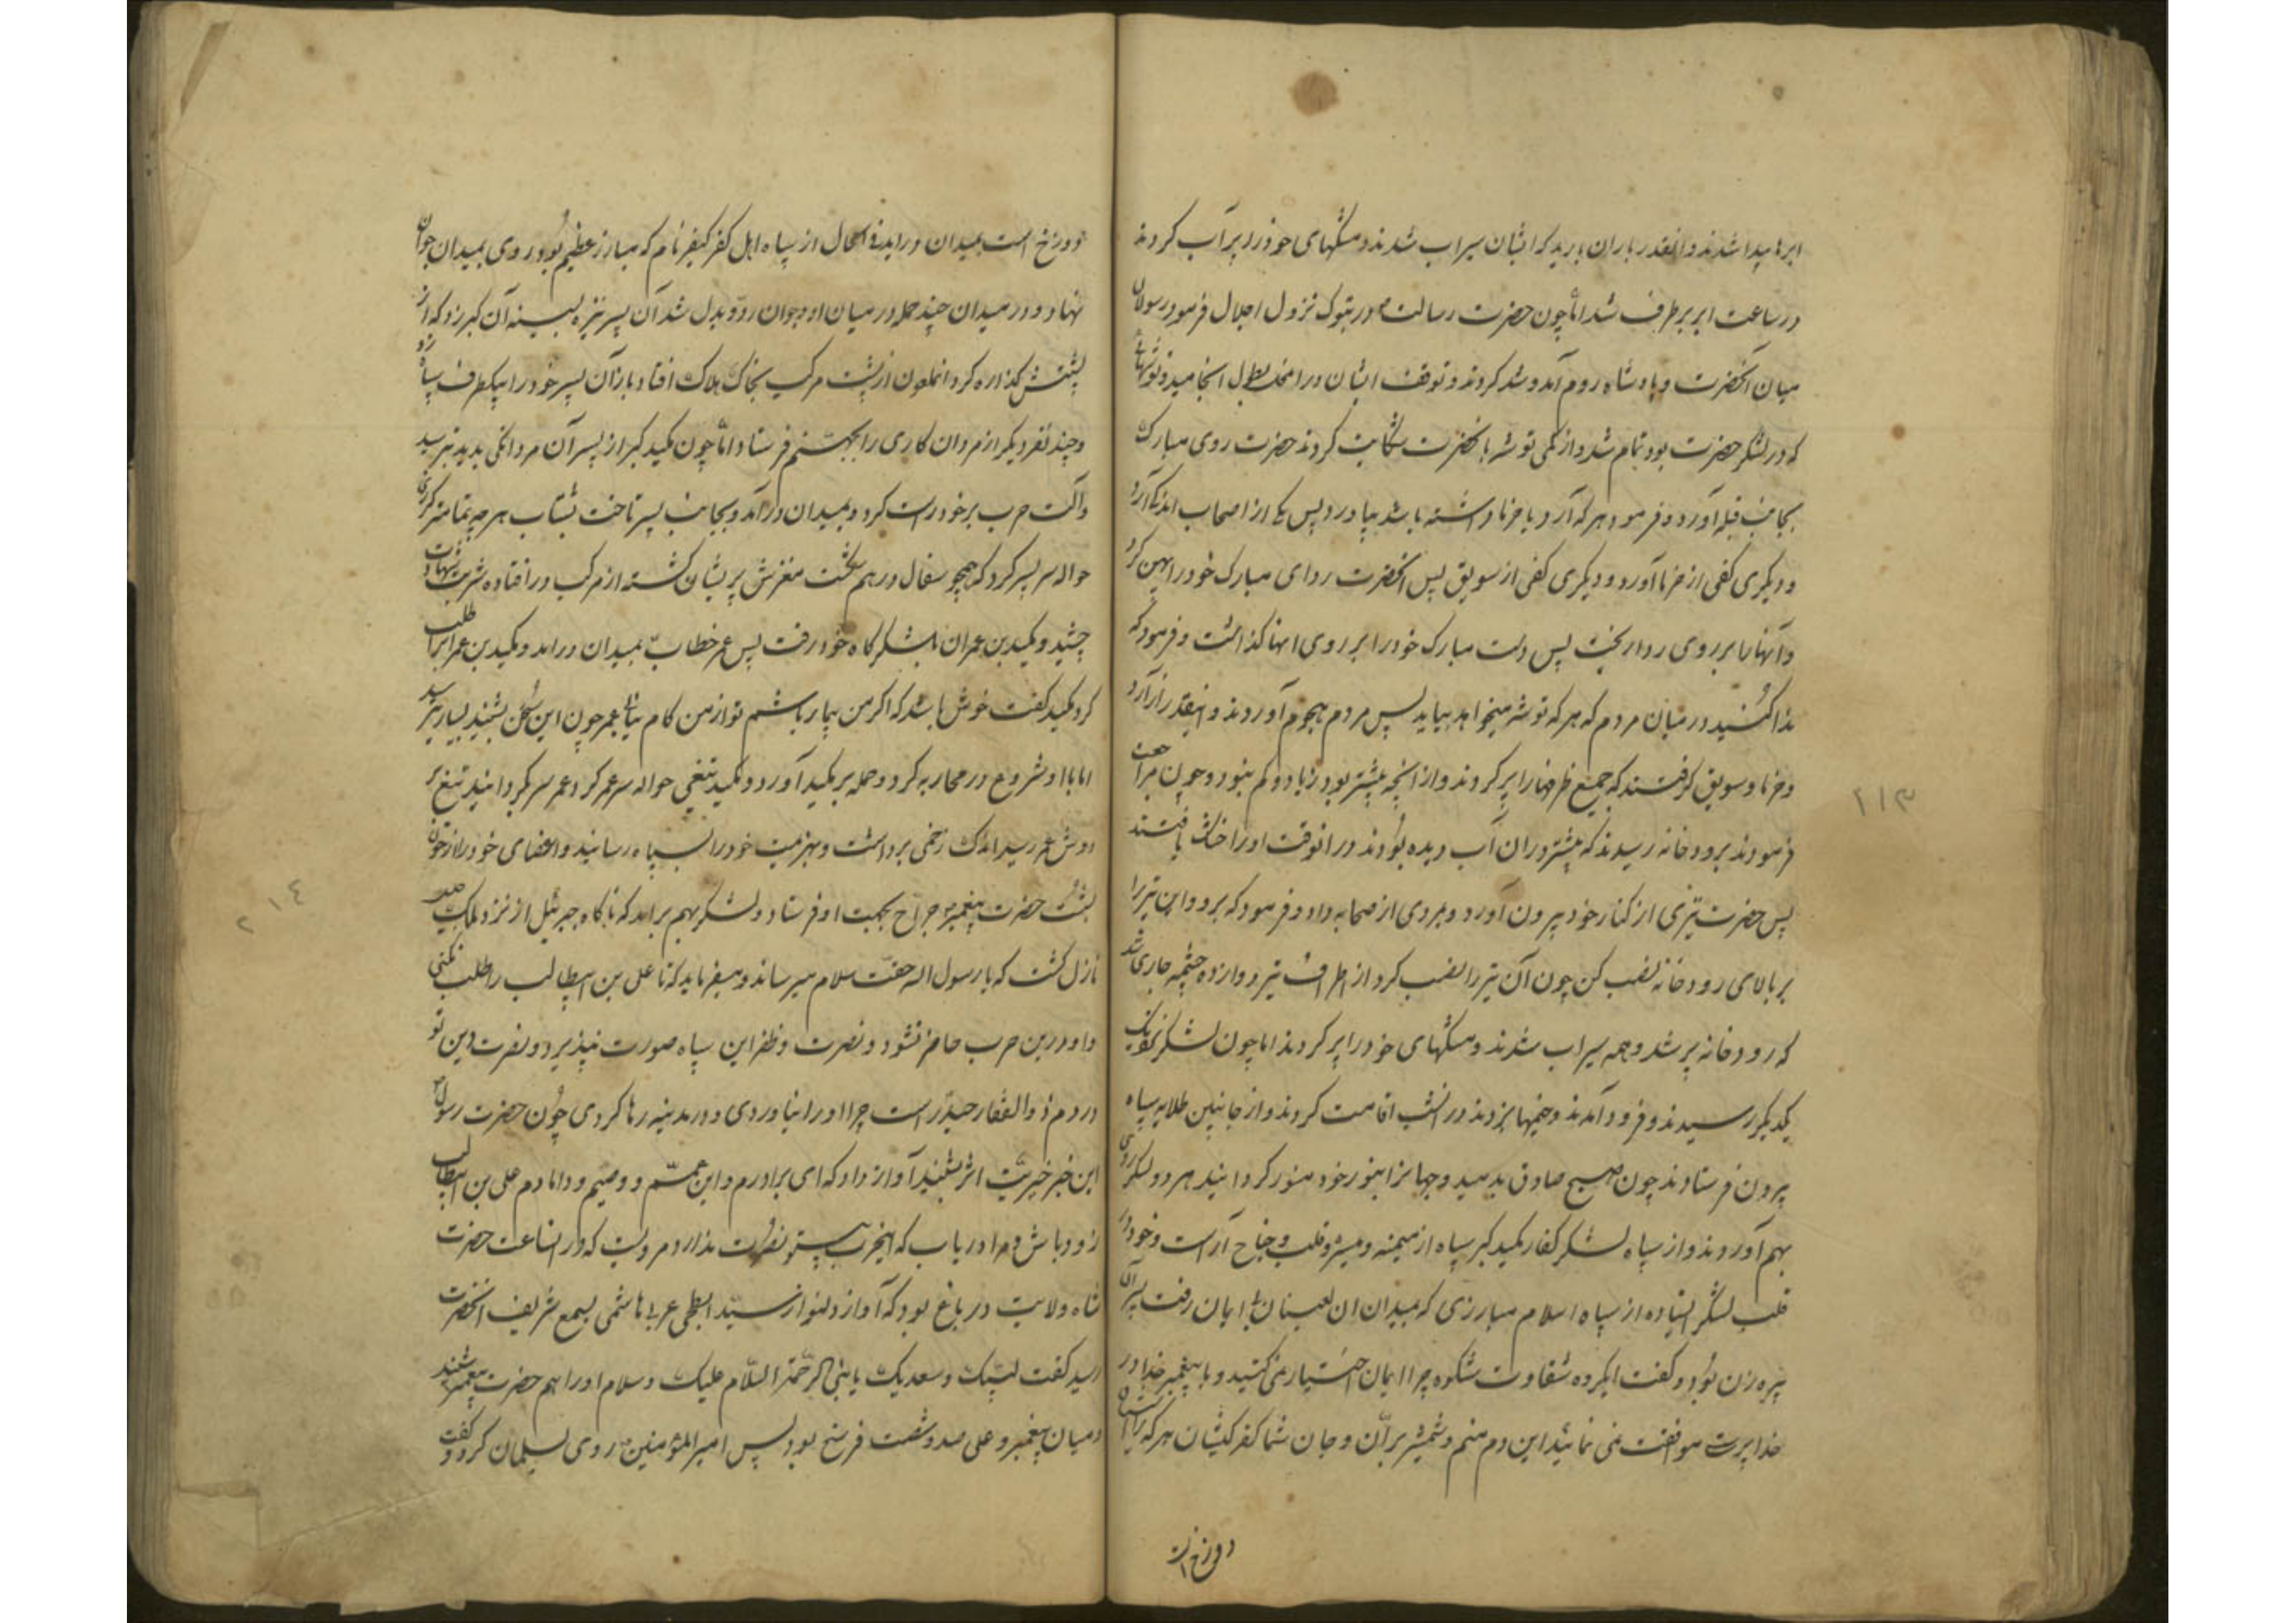 ابرها پیدا شدند و انقدر باران بارید که ایشان سیراب شدند و مشکهای خود را پر آب کردند
در ساعت ابر برطرف شد اما چون حضرت رسالت در تبوک نزول اجلال فرمود رسولان
میان آنحضرت و پادشاه روم آمد و شد کردند و توقف ایشان در انجا بطول انجامید و توشهای
که در لشکر حضرت بود تمام شد و از کمی توشه بانحضرت شکایت کردند حضرت روی مبارک
بجانب قبله آورد و فرمود هر که آرد یا خرما داشته باشد بیاورد پس یکی از اصحاب اندک آرد
و دیگری کفی از خرما آورد و دیگری کفی از سویق پس انحضرت ردای مبارک خود را پهن کرد
و آنها را بر روی ردا ریخت پس دست مبارک خود را بر روی انها گذاشت و فرمود که
ندا کنید در میان مردم که هر که توشه میخواهد بیاید پس مردم هجوم آوردند و انقدر از آرد
و خرما و سویق گرفتند که جمیع ظرفها را پر کردند و از انچه بیشتر بود زیاد و کم نبود و چون مراجعت
فرمودند برودخانه رسیدند که بیشتر در ان آب دیده بودند در انوقت او را خشک یافتند
پس حضرت تیری از کنار خود بیرون آورد و بمردی از صحابه داد و فرمود که برو و این تیر را
بر بالای رودخانه نصب کن چون آن تیر را نصب کرد از اطراف تیر دوازده چشمه جاری شد
که رودخانه پر شد و همه سیراب شدند و مشکهای خود را پر کردند اما چون لشکر نزدیک
یکدیگر رسیدند و فرود آمدند و خیمها بزدند در انشب اقامت کردند و از جانبین طلایه سپاه
بیرون فرستادند چون صبح صادق بدمید و جهانرا بنور خود منور گردانید هر دو لشکر روی
بهم آوردند و از سپاه لشکر کفار مکید کبر سپاه از میمنه و میسره و قلب و جناح آراست و خود در
قلب لشکر ایستاده از سپاه اسلام مبارزی که بمیدان ان لعینان بی ایمان رفت پسر آن
پیره زن بود و گفت ایگروه شقاوت شکوه چرا ایمان اختیار نمی کنید و با پیغمبر خدا در
خدا پرستی موافقت نمی نمائید این دم منم و شمشیر بران و جان شما کفر کیشان هر که را
دوزخ است
۲۱۳
دوزخ است بمیدان دراید فی الحال از سپاه اهل کفر کیفر نام که مبارز عظیم بود روی بمیدان جوان
نهاد و در میدان چند حمله در میان او و جوان رد و بدل شد آن پسر نیزه بسینه آن کبر زد که از
پشتش گذاره کرد انملعون از پشت مرکب بخاک هلاک افتاد باز آن پسر خود را بیکطرف سپاه زد
و چند نفر دیگر از مردان کاری را بجهنم فرستاد اما چون مکید کبر از پسر آن مردانگی بدید بترسید
و آلت حرب بر خود راست کرد و بمیدان درآمد و بجانب پسر تاخت بشتاب هر چه تمامتر گرزی
حواله سر پسر کرد که همچو سفال درهم شکست مغزش پریشان گشته از مرکب در افتاده شربت شهادت
چشید و مکید بن عمران بلشکرگاه خود رفت پس عمر خطاب بمیدان درامد و مکید بن عمران را طلب
کرد مکید گفت خوش باشد که اگر من بیمار باشم تو از من کام بیابی عمر چون این سخن بشنید بسیار بترسید
اما با او شروع در محاربه کرد و حمله بر مکید آورد و مکید تیغی حواله سر عمر کرد عمر سر بگردانید تیغ بر
دوش عمر رسید اندک زخمی برداشت و بهزیمت خود را بسپاه رسانید و اعضای خود را از خون
بشست حضرت پیغمبر جراح بجهت او فرستاد و لشکر بهم برامد که ناگاه جبرئیل از نزد ملک جلیل
نازل گشت که یا رسول اله حقت سلام میرساند و میفرماید که تا علی بن ابیطالب را طلب نکنی
و او درین حرب حاضر نشود و نصرت و ظفر این سپاه صورت نپذیرد و نصرت دین تو
در دم ذوالفقار حیدر است چرا او را نیاوردی و در مدینه رها کردی چون حضرت رسول
این خبر خیریت اثر بشنید آواز داد که ای برادرم و ابن عم و وصیم و دامادم علی بن ابیطالب
زود باش و مرا دریاب که اینحرب بی تو نصرت ندارد مرویست که در انساعت حضرت
شاه ولایت در باغ بود که آواز دلنواز سید ابطحی عربی هاشمی بسمع شریف انحضرت
رسید گفت لبیک و سعدیک یا نبی الرحمة السلام علیک و سلام او را هم حضرت پیغمبر شنید
و میان پیغمبر و علی صد و شصت فرسخ بود پس امیرالمؤمنین روی بسلمان کرد و گفت
۲۱٤